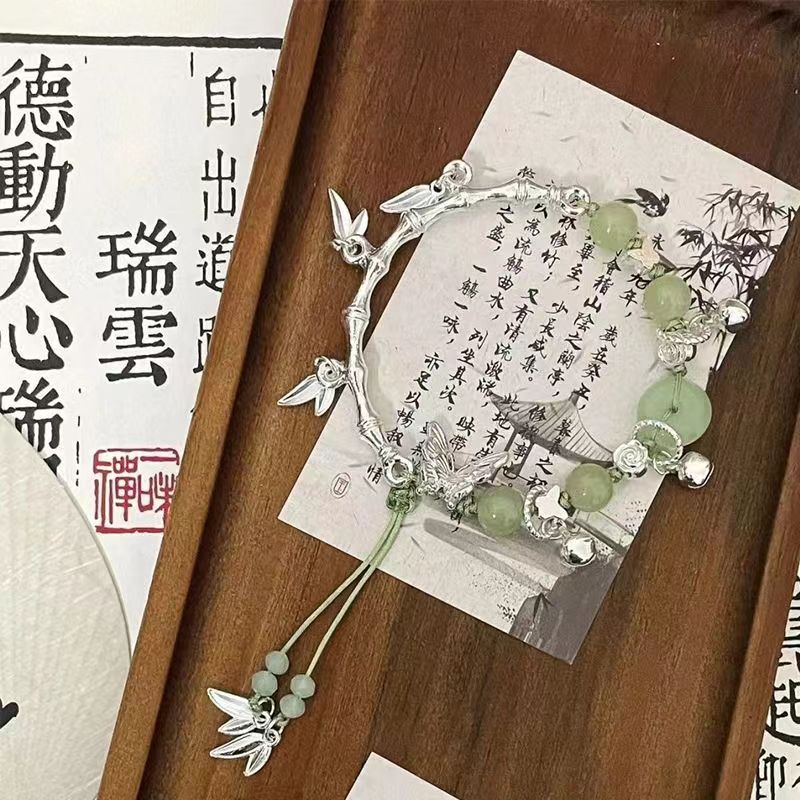 永 九年，歲在癸丑，暮春之初
會稽山陰之蘭亭，修禊事也。
畢至，少長咸集。此地有
林修竹，又有清流激湍，映帶
以為流觴曲水，列坐其次。
之盛，一觴一詠，亦足以暢叙
情
自出道
瑞雲
一味禪
德動天心瑞